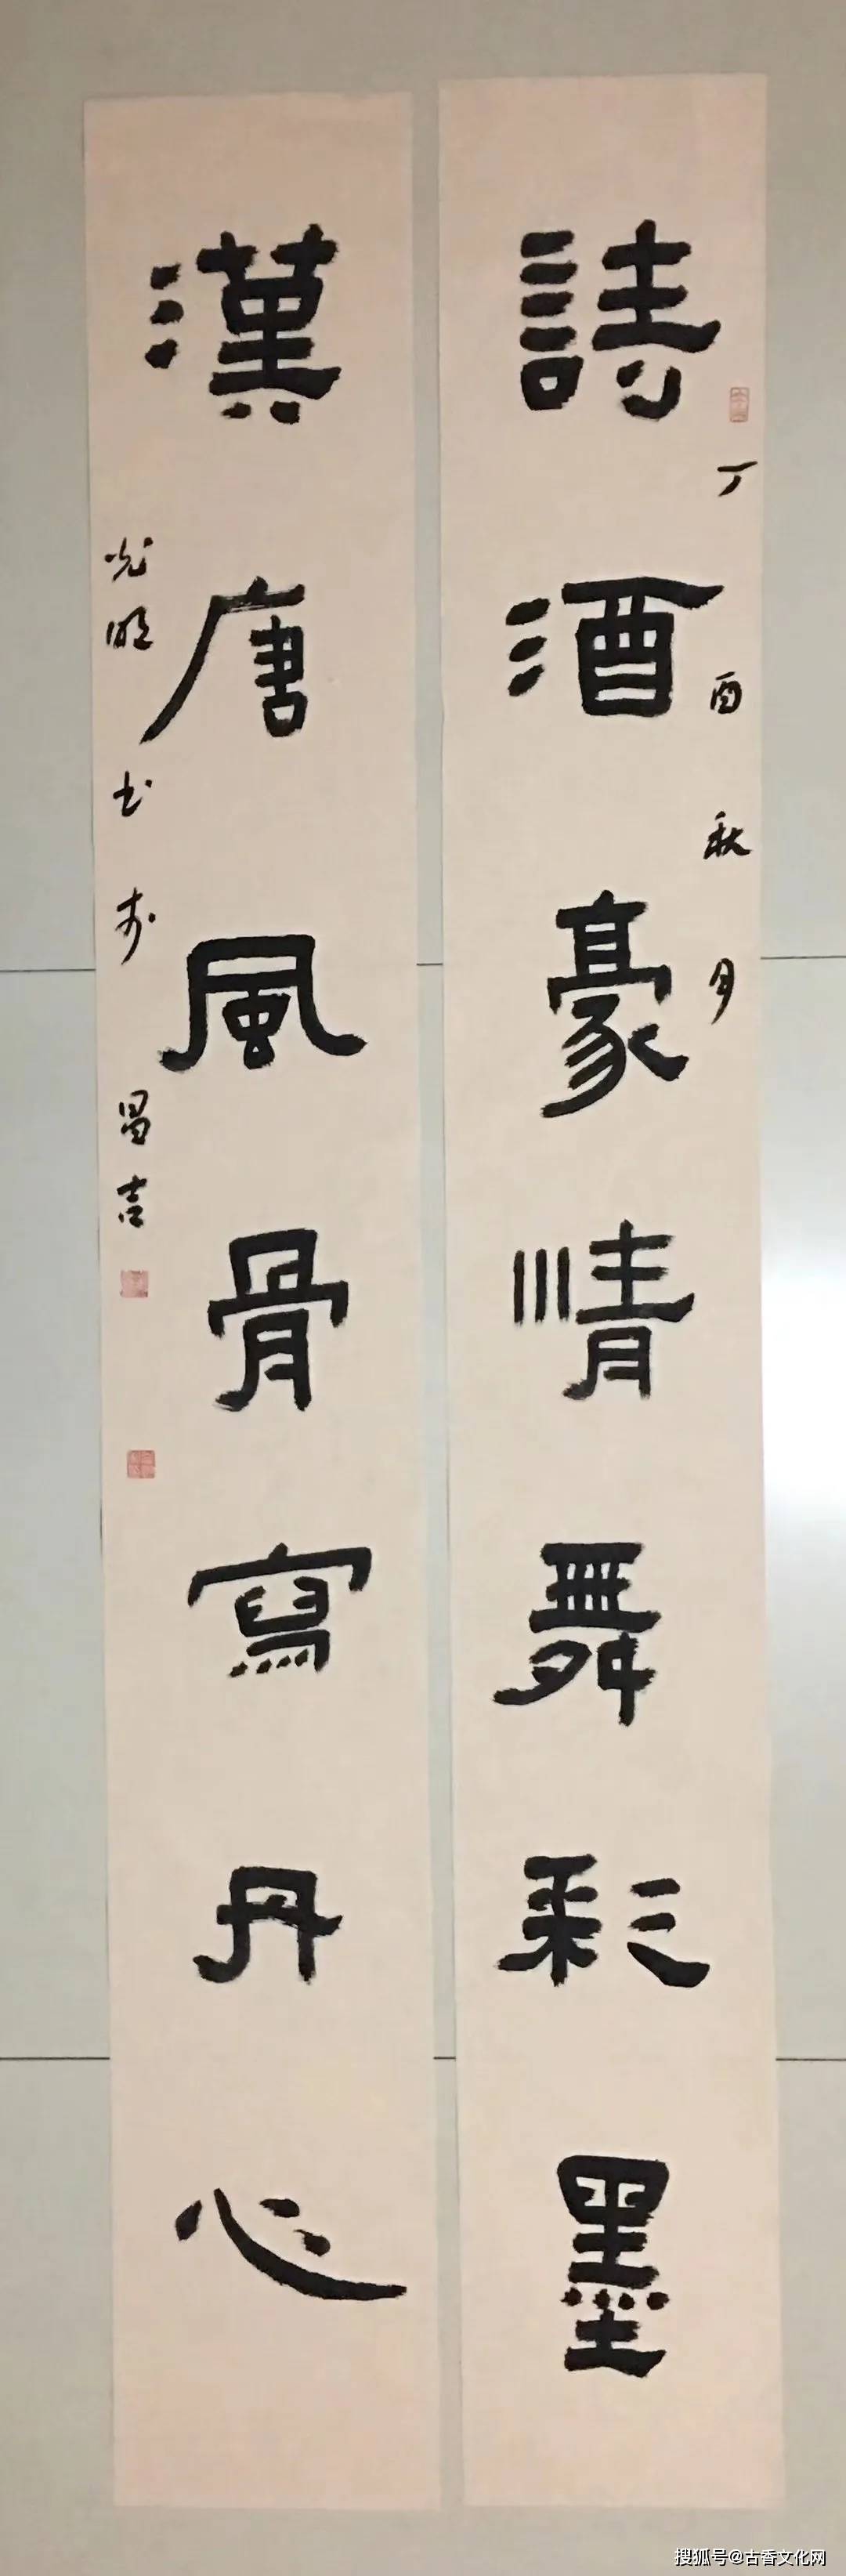 詩酒豪情舞彩墨
丁酉秋月
漢唐風骨寫丹心
光明书于昌吉
搜狐号@古香文化网